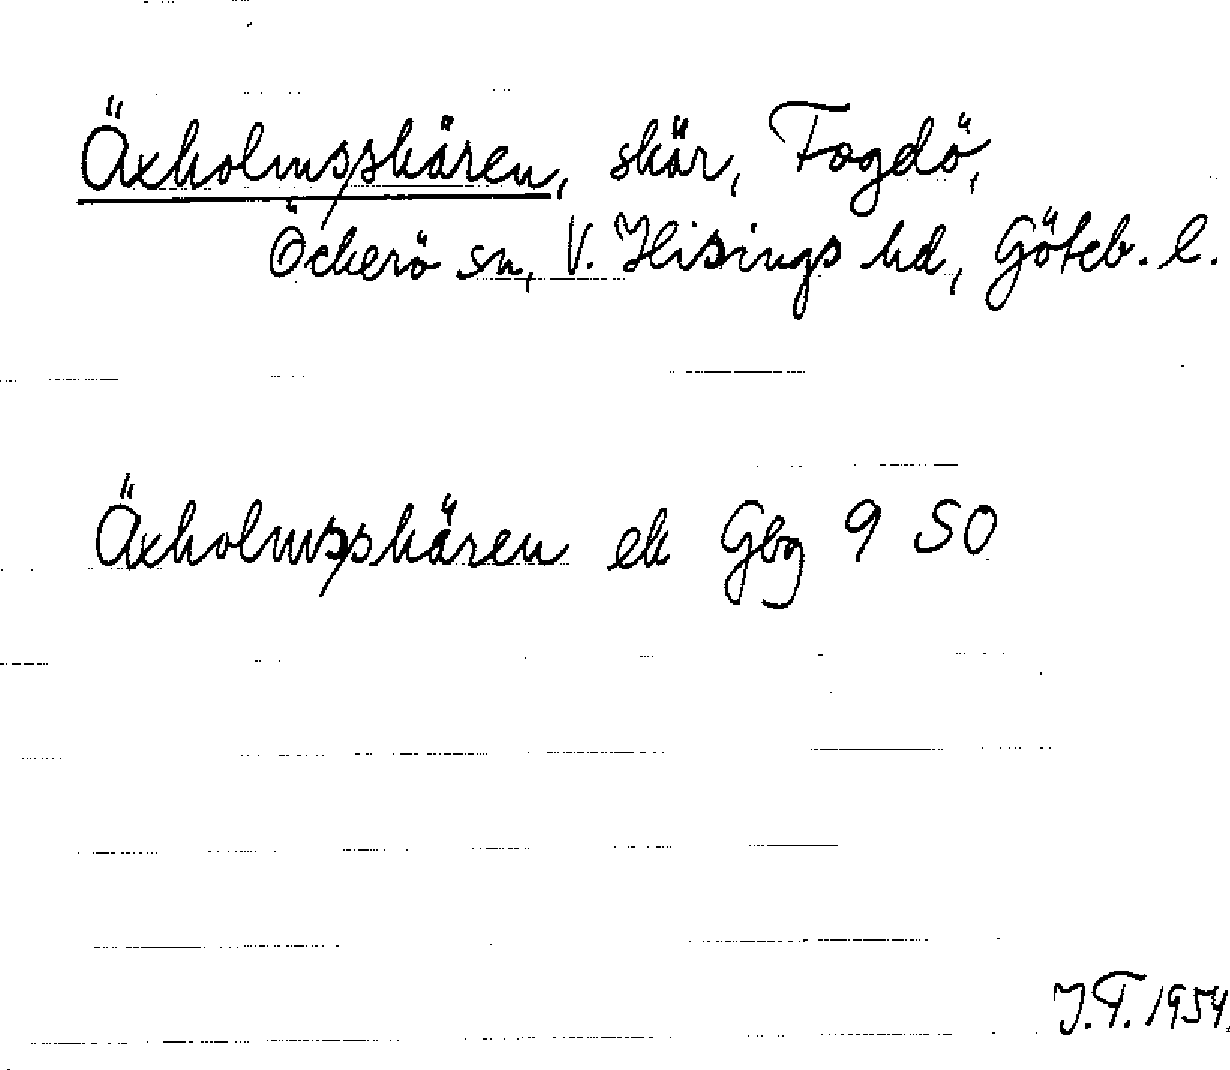 Äxholmsskären, skär, Fogdö,
Öckerö sn, V. Hisings hd, Göteb. l.
Äxholmsskären ek Gbg 9 SO
J.F. 1954